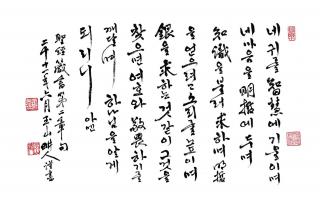 네 귀를 智慧에 기울이며
네 마음을 明哲에 두며
知識을 불러 求하며 明哲
을 얻으려고 소리를 높이며
銀을 求하는 것 같이 그것을
찾으면 여호와 敬畏하기를
깨달으며 하나님을 알게
되리니 아멘
聖經 箴言 第二章 句
二千十一年 六月 玉山